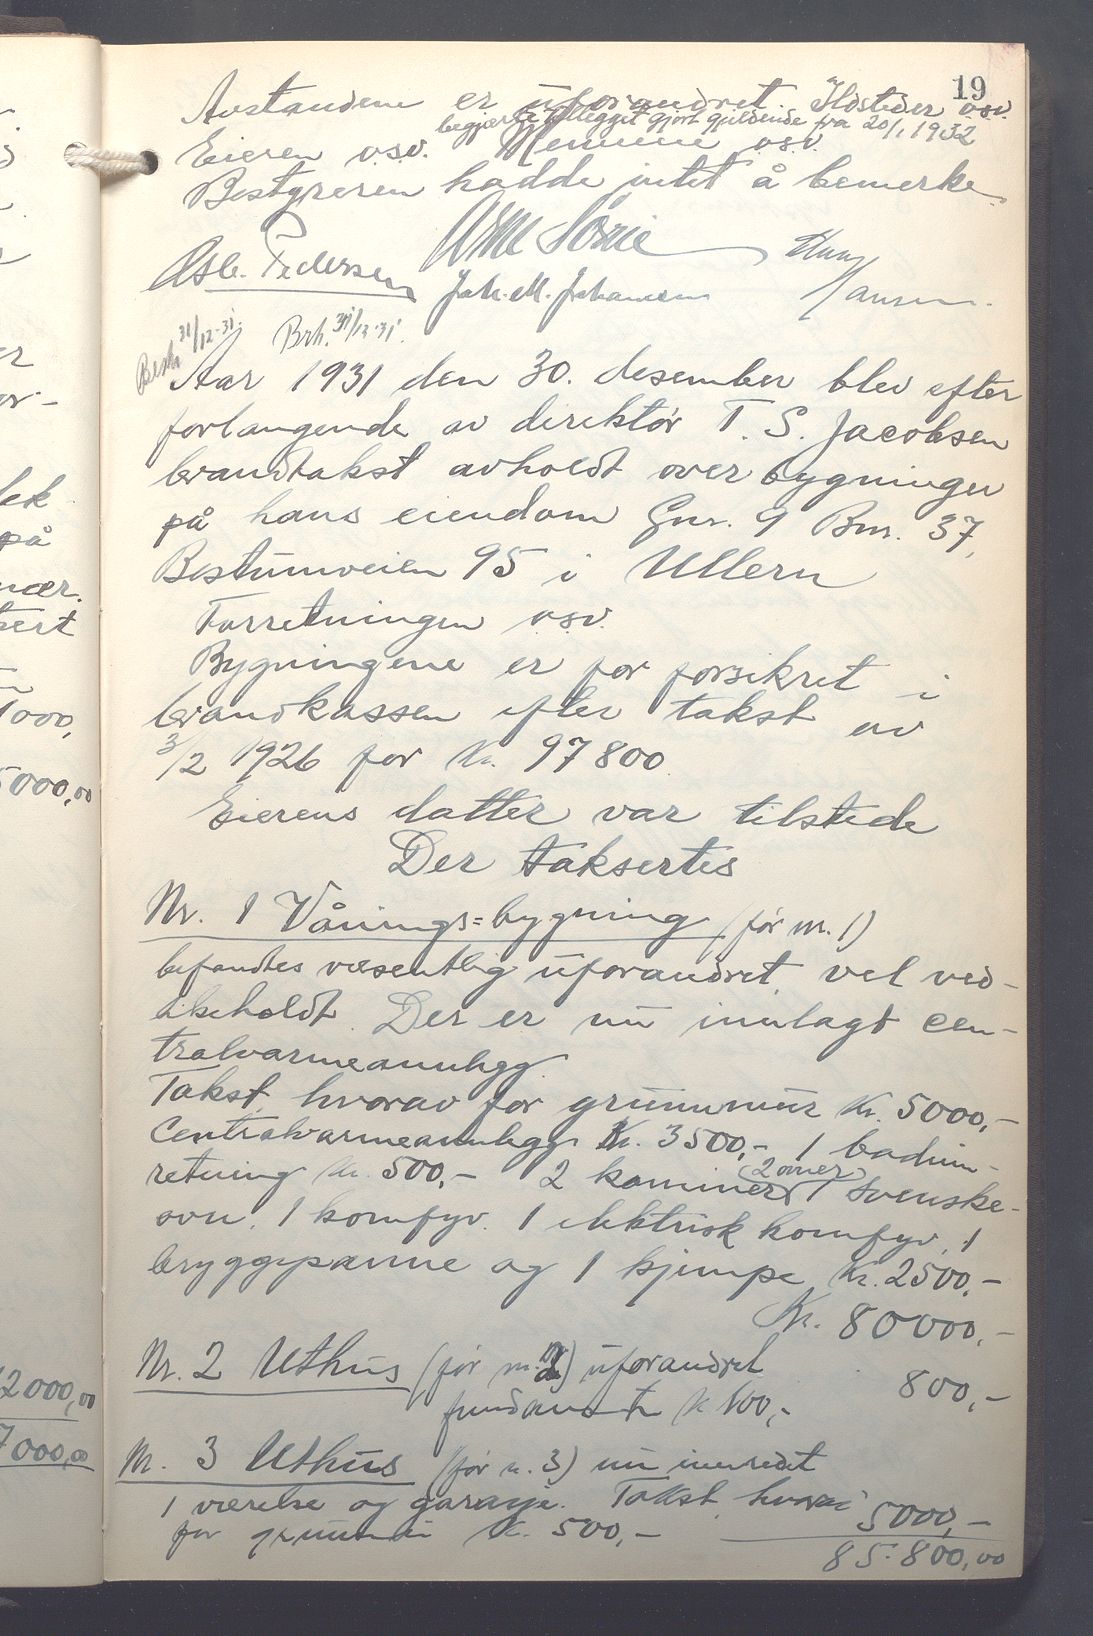 19
Avstandene er uforandret. Ildsteder osv.
begjærte tillegget gjort gjeldende fra 20/1 1932
Eieren osv. Mennene osv.
Bestyreren hadde intet å bemerke
Asle Pedersen Joh. M. Johansen Hans Hansen.
Besk. 31/12-31. Brh. 31/12-31.
Aar 1931 den 30. desember blev efter
forlangende av direktør T. S. Jacobsen
brandtakst avholdt over bygninger
på hans eiendom Gnr. 9 Bnr. 37,
Bestumveien 95 i Ullern
Forretningen osv.
Bygningene er før forsikret i
brandkassen efter takst av
3/2 1926 for Kr. 97800
Eierens datter var tilstede
Der taksertes
Nr. 1 Vånings=bygning (før nr. 1)
befandtes væsentlig uforandret, vel ved-
likeholdt. Der er nu innlagt cen-
tralvarmeannlegg.
Takst, hvorav for grunnmur Kr. 5000,-
Centralvarmeannlegg Kr. 3500,- 1 badinn-
retning Kr. 500,- 2 kaminer (2 ovner) 1 svenske-
ovn, 1 komfyr, 1 elektrisk komfyr, 1
bryggepanne og 1 kjempe Kr. 2500,-
Kr. 80000,-
Nr. 2 Uthus (før nr. 2) uforandret 800,-
fundament Kr 100,-
Nr. 3 Uthus (før nr. 3) nu innredet
1 værelse og garasje. Takst, hvorav 5000,-
for grunnmur Kr. 500,-
85.800,00
lek
på
nær.
1000,
5000,00
2000,00
7000,00